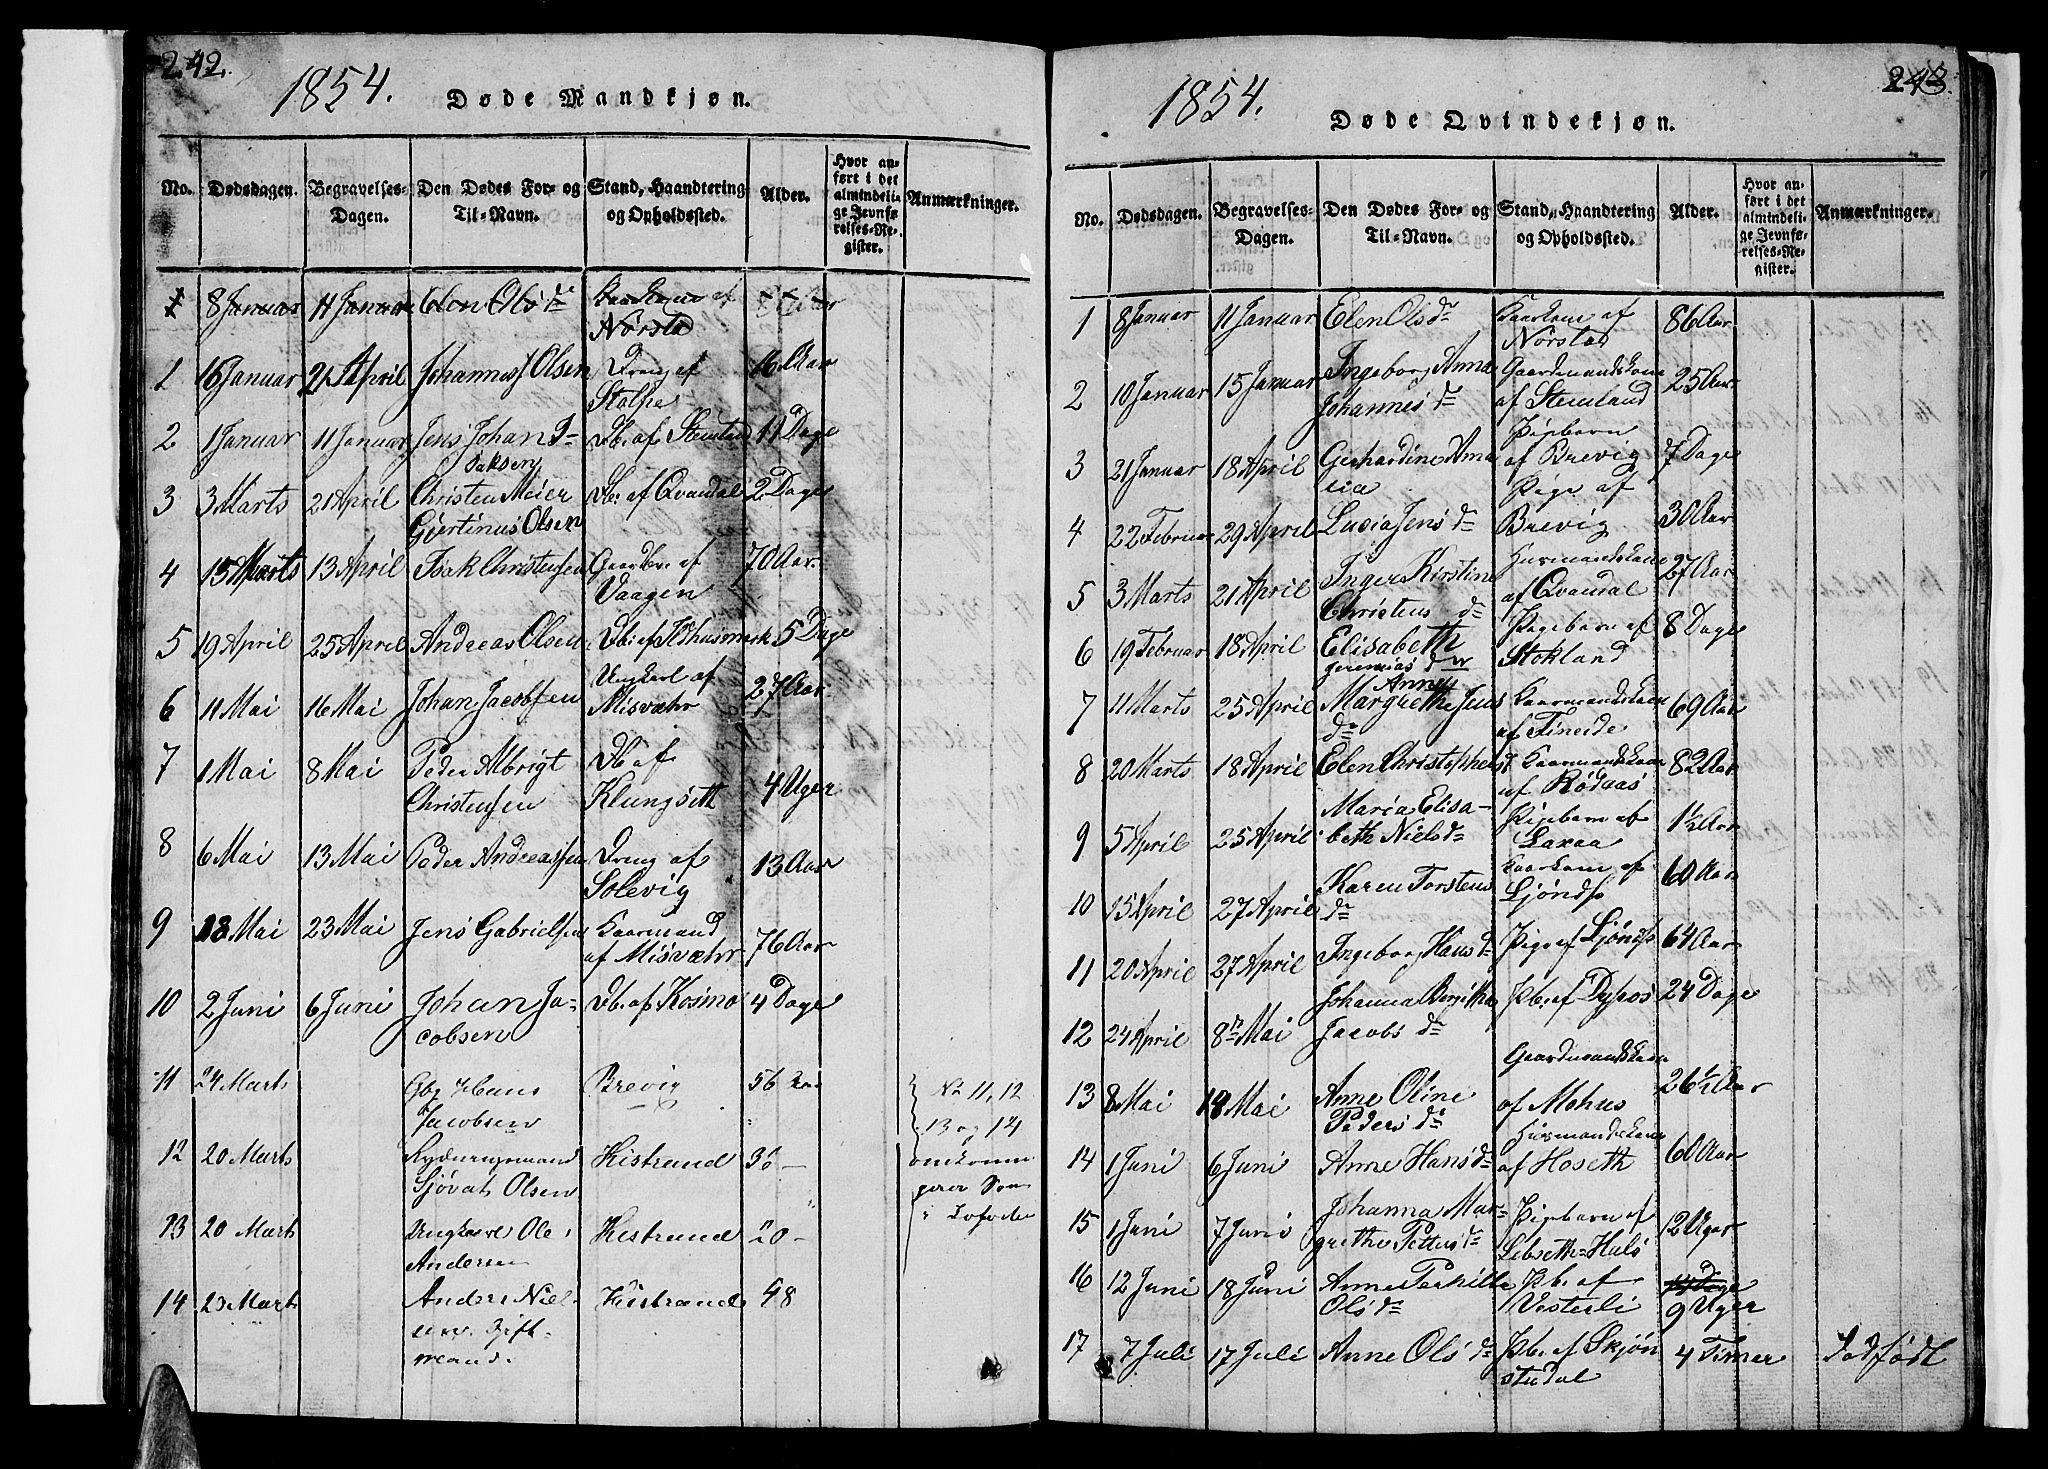 242.
1854.
Døde Mandkjøn.
No. Dødsdagen. Begravelses-Dagen. Den Dødes For- og Til-Navn. Stand, Haandtering og Opholdssted. Alder. Hvor anført i det almindelige Jevnførelses-Register. Anmærkninger.
1 8 Januar 11 Januar Elen Ols dr Kaarkone af Norstad 86 Aar
1 16 Januar 21 April Johannes Olsen Dreng af Stolpe 16 Aar
2 1 Januar 11 Januar Jens Johan Isaksen Db. af Stemland 11 Dage
3 3 Marts 21 April Christen Meier Gjertinus Olsen Db. af Qvandal 2 Dage
4 15 Marts 13 April Isak Christensen Gaardbr. af Vaagen 70 Aar
5 19 April 25 April Andreas Olsen Db. af Kohusmark 5 Dage
6 11 Mai 16 Mai Johan Jacobsen Ungkarl af Misvæhr 27 Aar
7 1 Mai 8 Mai Peder Albrigt Christensen Db af Klungseth 4 Uger
8 6 Mai 13 Mai Peder Andreassen Dreng af Solevig 13 Aar
9 18 Mai 23 Mai Jens Gabrielsen Kaarmand af Misvæhr 76 Aar
10 2 Juni 6 Juni Johan Jacobsen Db. af Kosmo 4 Dage
11 24 Marts Gbr Hans Jacobsen Brevig 56
12 20 Marts Sjøvat Olsen Kistrand 36 –
13 20 Marts Ungkarl Ole Andersen Kistrand 20 –
14 20 Marts Anders Nielsen. Gift-mand. Kistrand 48
No 11, 12
13 og 14
i Lofoden
243.
1854.
Døde Qvindekjøn.
No. Dødsdagen. Begravelses-Dagen. Den Dødes For- og Til-Navn. Stand, Haandtering og Opholdssted. Alder. Hvor anført i det almindelige Jevnførelses-Register. Anmærkninger.
1 8 Januar 11 Januar Elen Ols dr Kaarkone af Norstad 86 Aar
2 10 Januar 15 Januar Ingeborg Anna Johannes dr Gaardmandskone af Stemland 25 Aar
3 21 Januar 18 April Gerhardine Amalia Pigebarn af Brevig 7 Dage
4 22 Februar 29 April Lucia Jens dr Pige af Brevig 30 Aar
5 3 Marts 21 April Inger Kirstine Christens dr Husmandskone af Qvandal 27 Aar
6 19 Februar 18 April Elisabeth Jeremias dr Pigebarn af Stokland 8 Dage
7 11 Marts 25 April Anne Margrethe Jens dr Kaarmandskone af Fineide 69 Aar
8 20 Marts 18 April Elen Christophers dr Kaarmandskone af Rødaas 82 Aar
9 5 April 25 April Maria Elisabeth Niels dr Pigebarn af Laxaa 1½ Aar
10 15 April 27 April Karen Torstens dr Kaarkone af Ljøndss 60 Aar
11 20 April 27 April Ingeborg Hans dr Pige af Ljøndss 64 Aar
12 24 April 8n Mai Johanna Bergitha Jacobs dr Pb. af Dybos 24 Dage
13 8 Mai 18 Mai Anne Oline Peders dr Gaardmandskone af Mohus 26½ Aar
14 1 Juni 6 Juni Anne Hans dr Husmandskone af Hoseth 60 Aar
15 1 Juni 7 Juni Johanna Margrethe Pettus dr Pigebarn af Lebseth-Hals 12 Uger
16 12 Juni 18 Juni Anne Pernille Ols dr Pb. af Vesterli 9 Uger
17 7 Juli 17 Juli Anne Ols dr Pb. af Skjønstudal 4 Timer Dødfødt